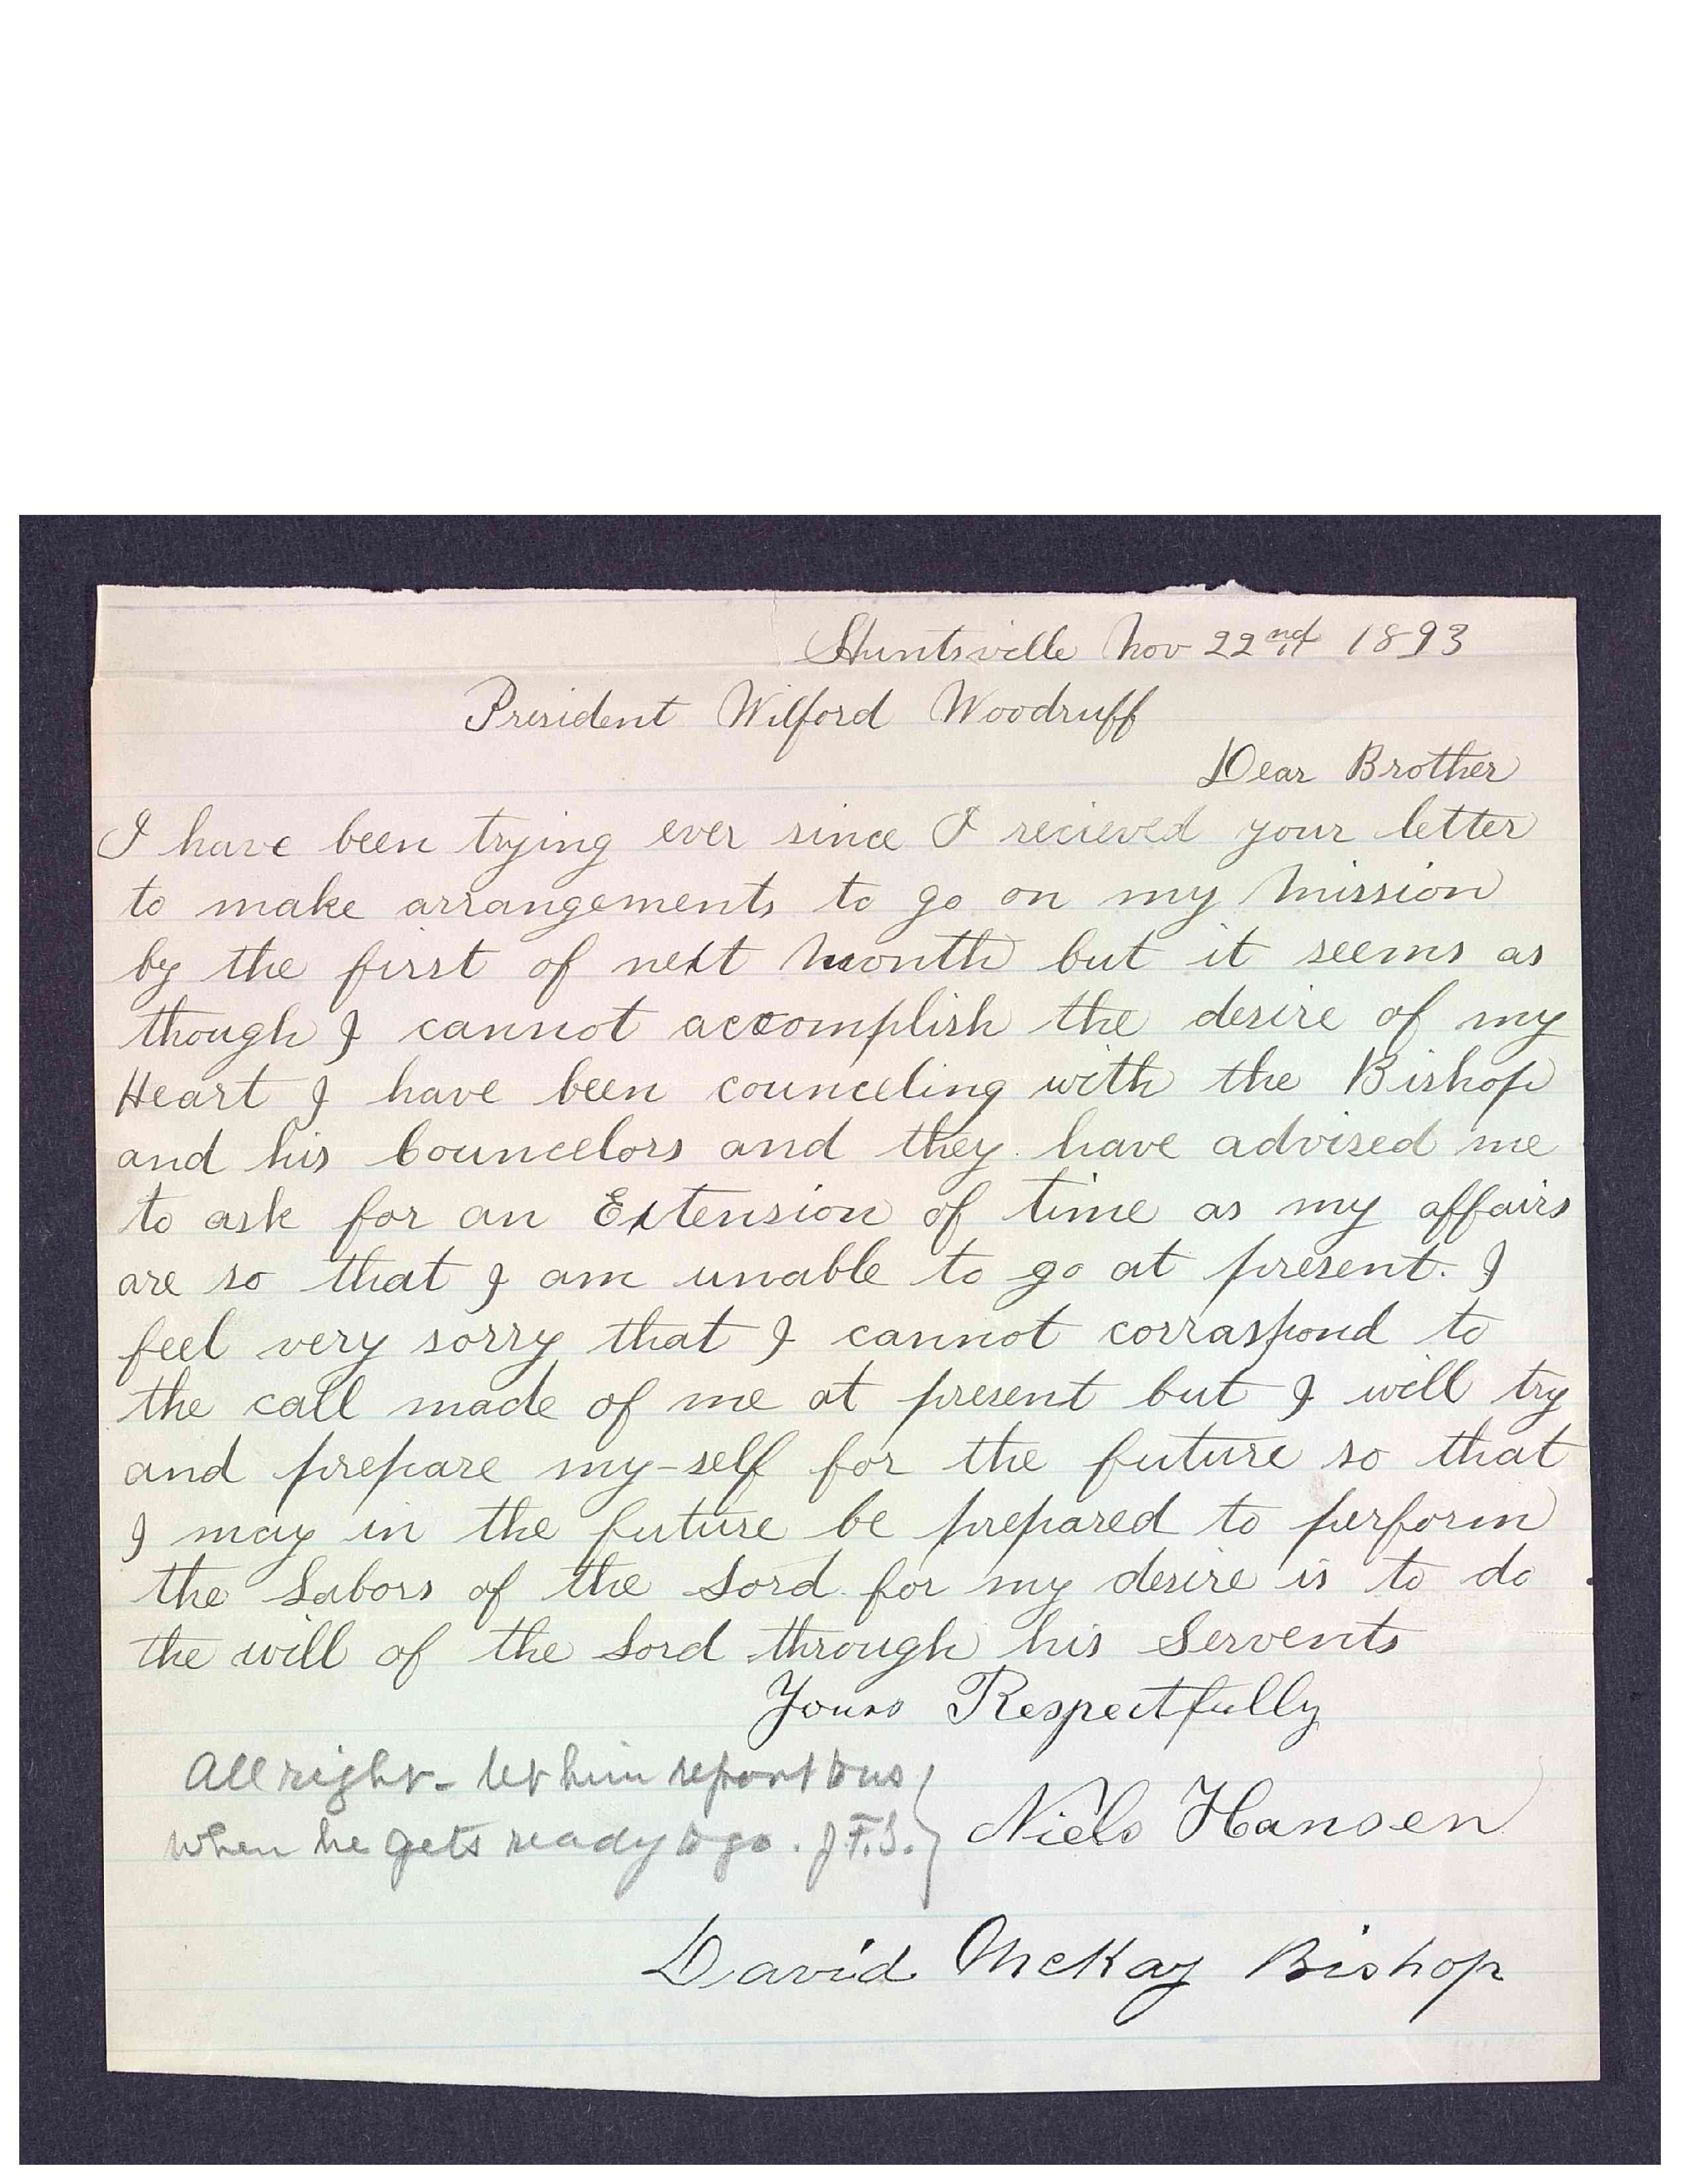 Huntsville Nov 22nd 1893
President Wilford Woodruff
Dear Brother
I have been trying ever since I recieved your letter
to make arrangements to go on my Mission
by the first of next Month but it seems as
though I cannot accomplish the desire of my
Heart I have been counceling with the Bishop
and his Councelors and they have advised me
to ask for an Extension of time as my affairs
are so that I am unable to go at present. I
feel very sorry that I cannot corraspond to
the call made of me at present but I will try
and prepare my-self for the future so that
I may in the future be prepared to perform
the Labors of the Lord for my desire is to do
the will of the Lord through his Servents
Yours Respectfully
Niels Hansen
All right - let him report to us
when he gets ready to go. J.F.S.
David McKay Bishop